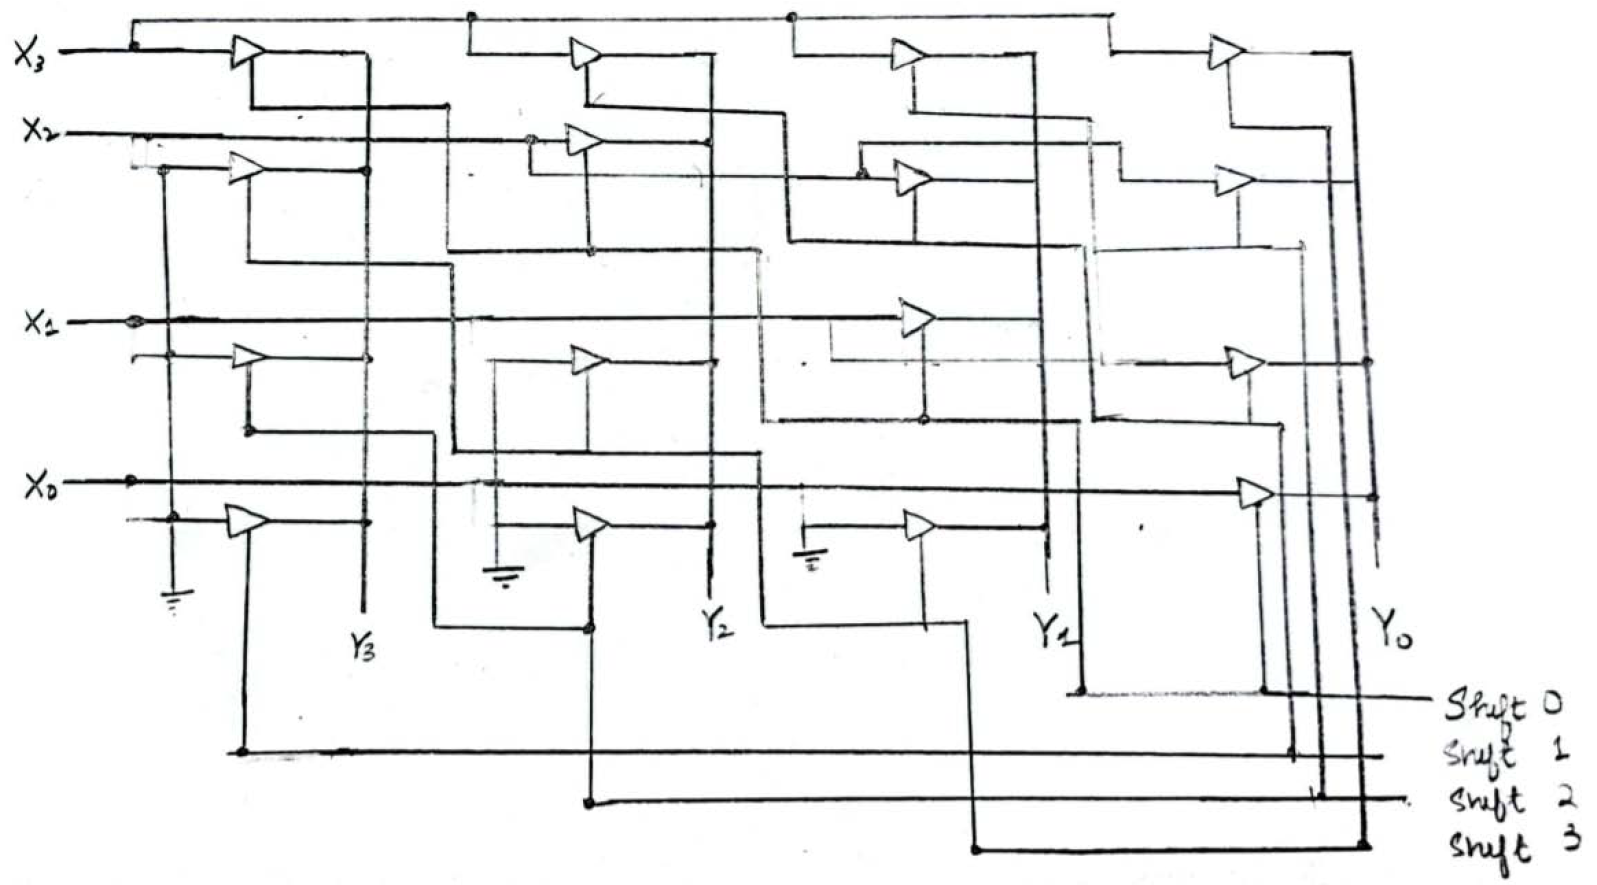 X3
X2
X1
X0
Y3
Y2
Y1
Y0
Shift 0
Shift 1
Shift 2
Shift 3